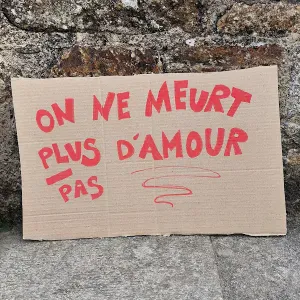 ON NE MEURT
PLUS D'AMOUR
PAS